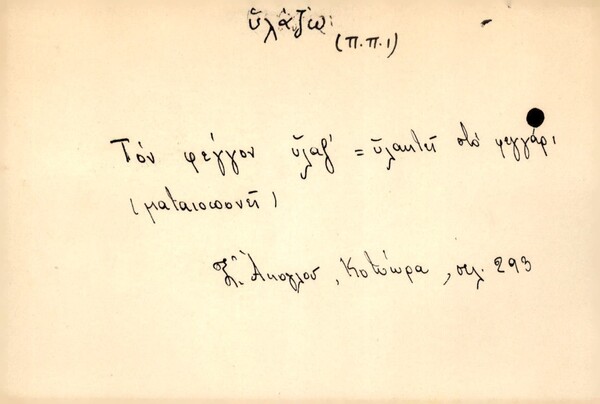 ὑλάζω
(π.π.1)
Τόν φέγγον ὑλάζ' = ὑλακτεῖ στό φεγγάρι
(ματαιοπονεῖ)
Ξ. Ἄκογλου, Κοτύωρα, σελ. 293